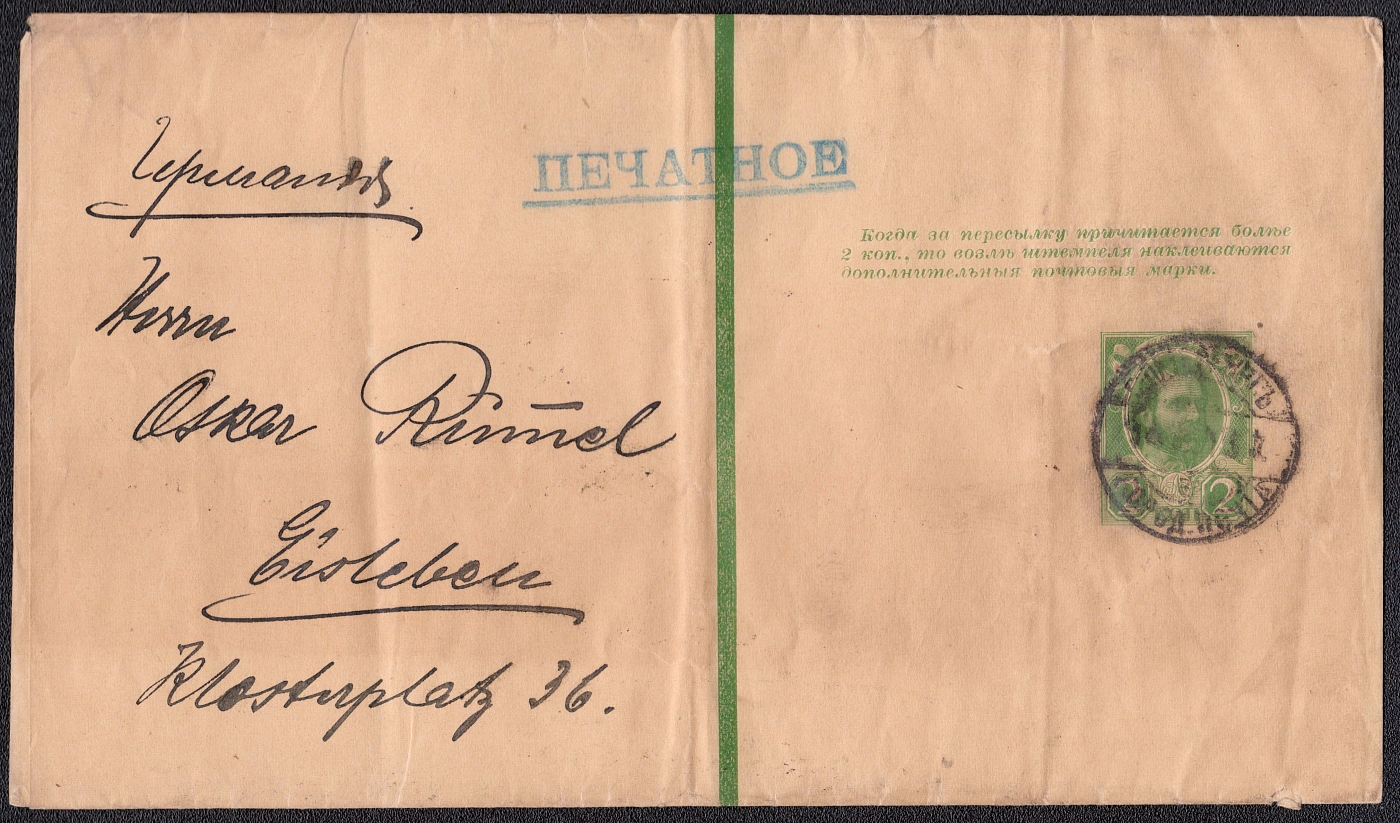 Германія
ПЕЧАТНОЕ
Когда за пересылку причитается болѣе
2 коп., то возлѣ штемпеля наклеиваются
дополнительныя почтовыя марки.
Herrn
Oskar Rümmel
Eisleben
Klosterplatz 36.
2